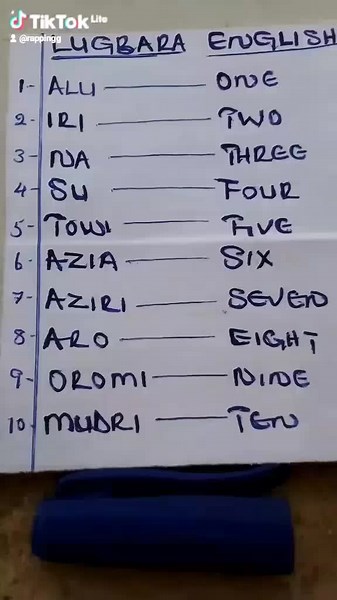 TikTok Lite
@rappingg
LUGBARA ENGLISH
1- ALU — ONE
2- IRI — TWO
3- NA — THREE
4- SU — FOUR
5- TOWI — FIVE
6- AZIA — SIX
7- AZIRI — SEVEN
8- ARO — EIGHT
9- OROMI — NINE
10- MUDRI — TEN